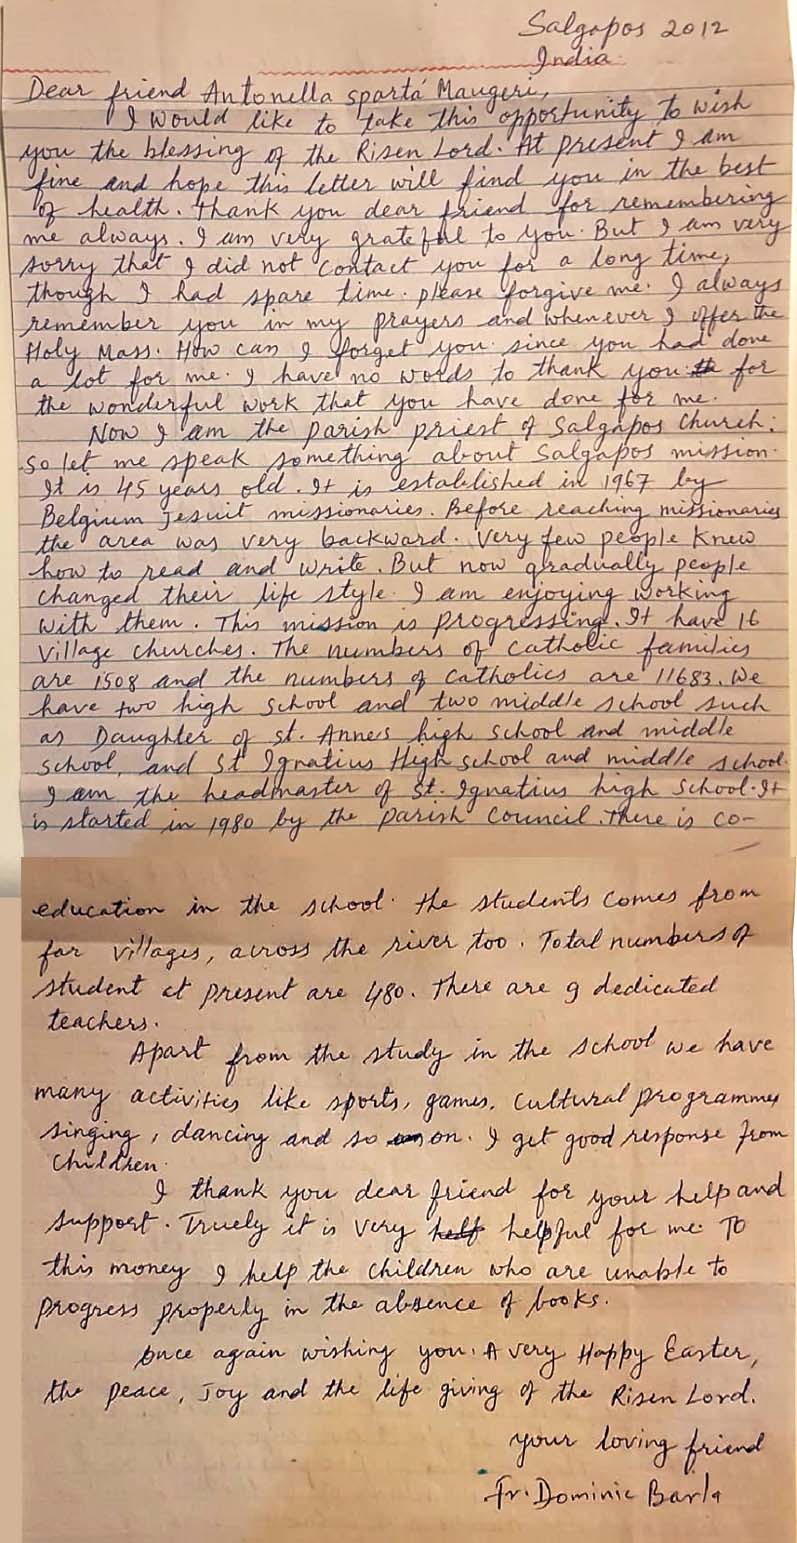 Salgapos 2012
India.
Dear friend Antonella spartá Maugeri,
I would like to take this opportunity to wish
you the blessing of the Risen Lord. At present I am
fine and hope this letter will find you in the best
of health. Thank you dear friend for remembering
me always. I am very grateful to you. But I am very
sorry that I did not contact you for a long time,
though I had spare time. please forgive me. I always
remember you in my prayers and whenever I offer the
Holy Mass. How can I forget you. since you had done
a lot for me. I have no words to thank you for
the wonderful work that you have done for me.
Now I am the parish priest of Salgapos church.
So let me speak something about Salgapos mission.
It is 45 years old. It is established in 1967 by
Belgium Jesuit missionaries. Before reaching missionaries
the area was very backward. Very few people knew
how to read and write. But now gradually people
changed their life style. I am enjoying working
with them. This mission is progressing. It have 16
village churches. The numbers of catholic families
are 1508 and the numbers of catholics are 11683. We
have two high school and two middle school such
as Daughter of st. Annes high school and middle
school, and St Ignatius High school and middle school.
I am the headmaster of St. Ignatius high school. It
is started in 1980 by the parish council. There is co-
education in the school. the students comes from
far villages, across the river too. Total numbers of
student at present are 480. There are 9 dedicated
teachers.
Apart from the study in the school we have
many activities like sports, games, cultural programmes
singing, dancing and so on. I get good response from
children.
I thank you dear friend for your help and
support. Truely it is very helpful for me. To
this money I help the children who are unable to
progress properly in the absence of books.
once again wishing you. A very Happy Easter,
the peace, Joy and the life giving of the Risen Lord.
your loving friend
Fr. Dominic Barla